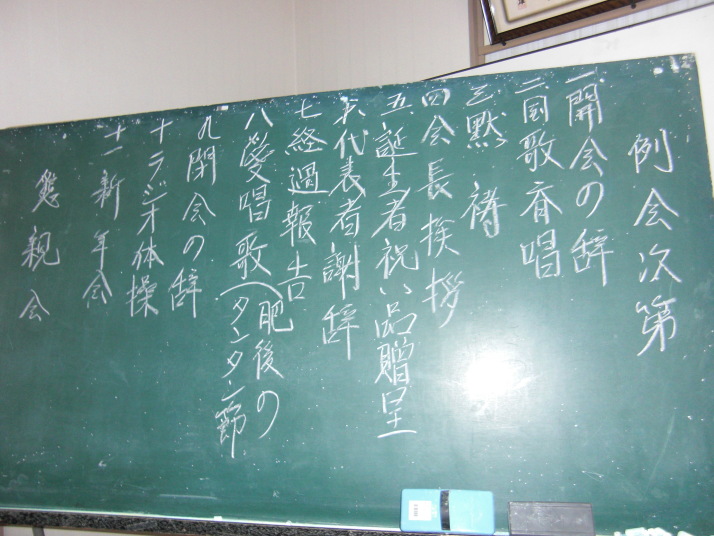 例会次第
一開会の辞
二国歌斉唱
三黙祷
四会長挨拶
五誕生者祝い品贈呈
六代表者謝辞
七経過報告
八愛唱歌(肥後の
(タンタン節
九閉会の辞
十ラジオ体操
十一新年会
懇親会